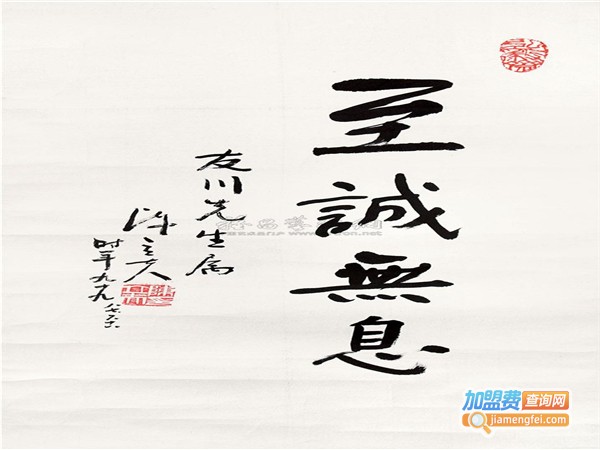 至誠無息
友川先生属
陳立夫
时年九十九
加盟费查询网
jiamengfei.com